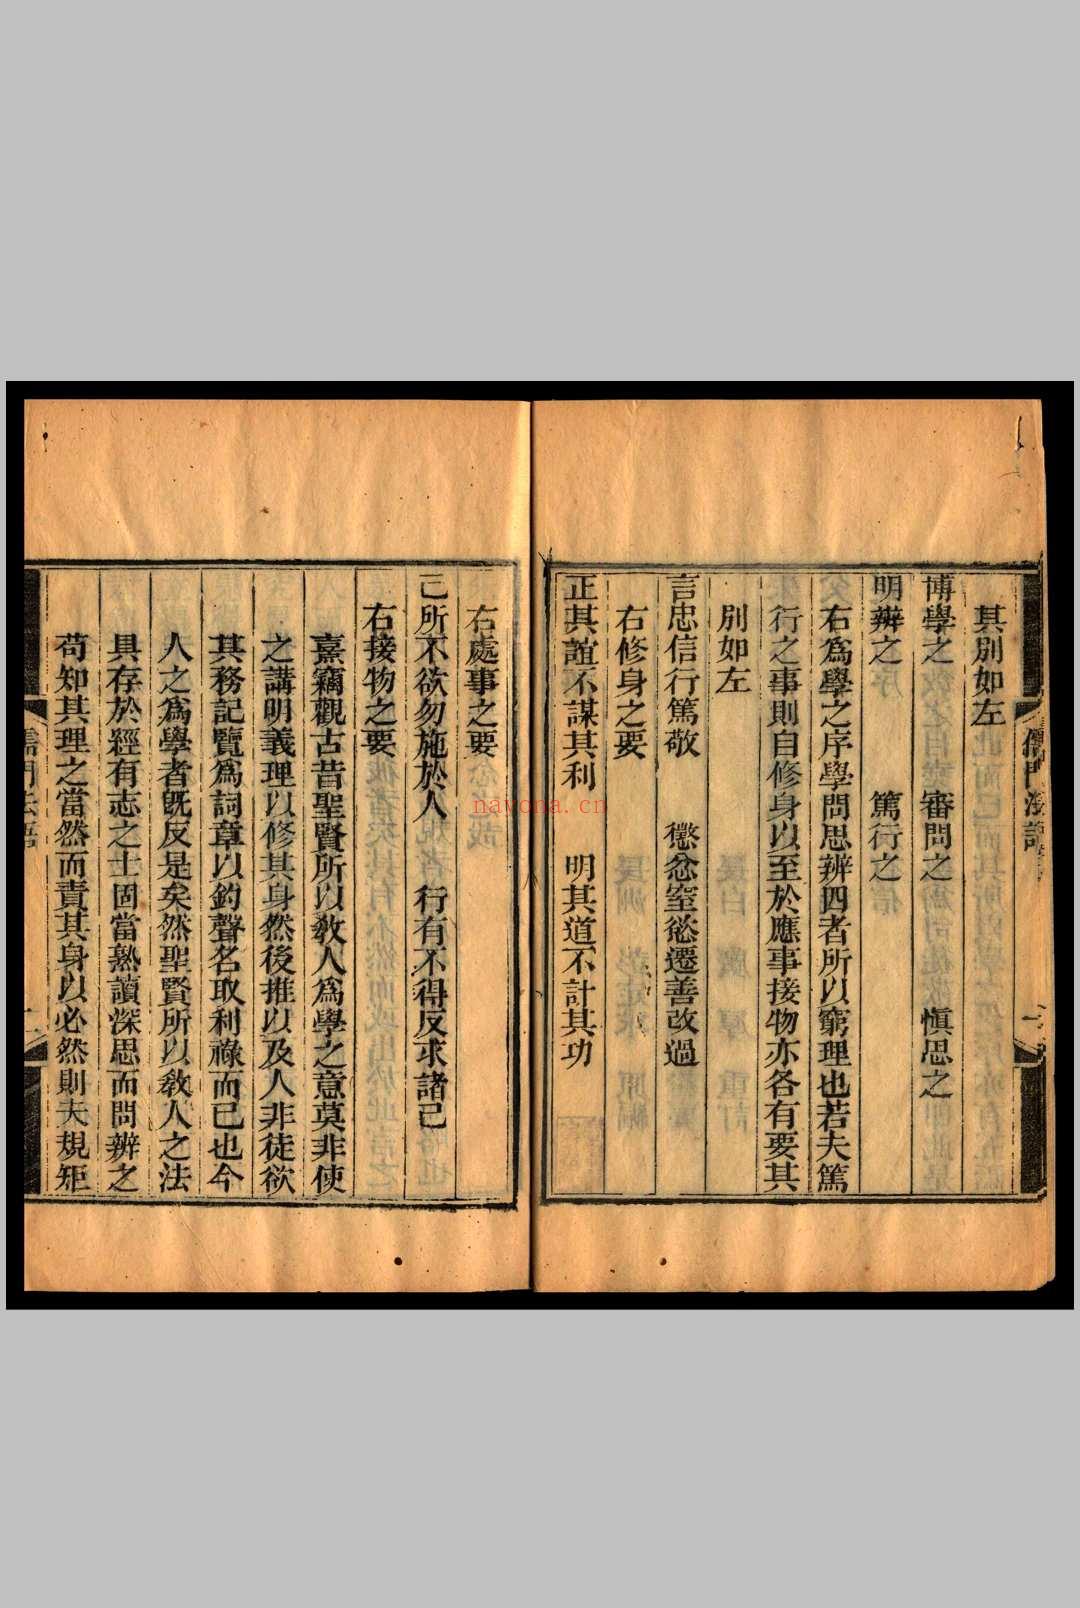 其別如左
博學之　審問之　慎思之
明辨之　篤行之
右爲學之序學問思辨四者所以窮理也若夫篤
行之事則自修身以至於應事接物亦各有要其
別如左
言忠信行篤敬　懲忿窒慾遷善改過
右修身之要
正其誼不謀其利　明其道不計其功
右處事之要
己所不欲勿施於人　行有不得反求諸己
右接物之要
熹竊觀古昔聖賢所以教人爲學之意莫非使
之講明義理以修其身然後推以及人非徒欲
其務記覽爲詞章以釣聲名取利祿而已也今
人之爲學者旣反是矣然聖賢所以教人之法
具存於經有志之士固當熟讀深思而問辨之
苟知其理之當然而責其身以必然則夫規矩
儒門法語
nayona.cn